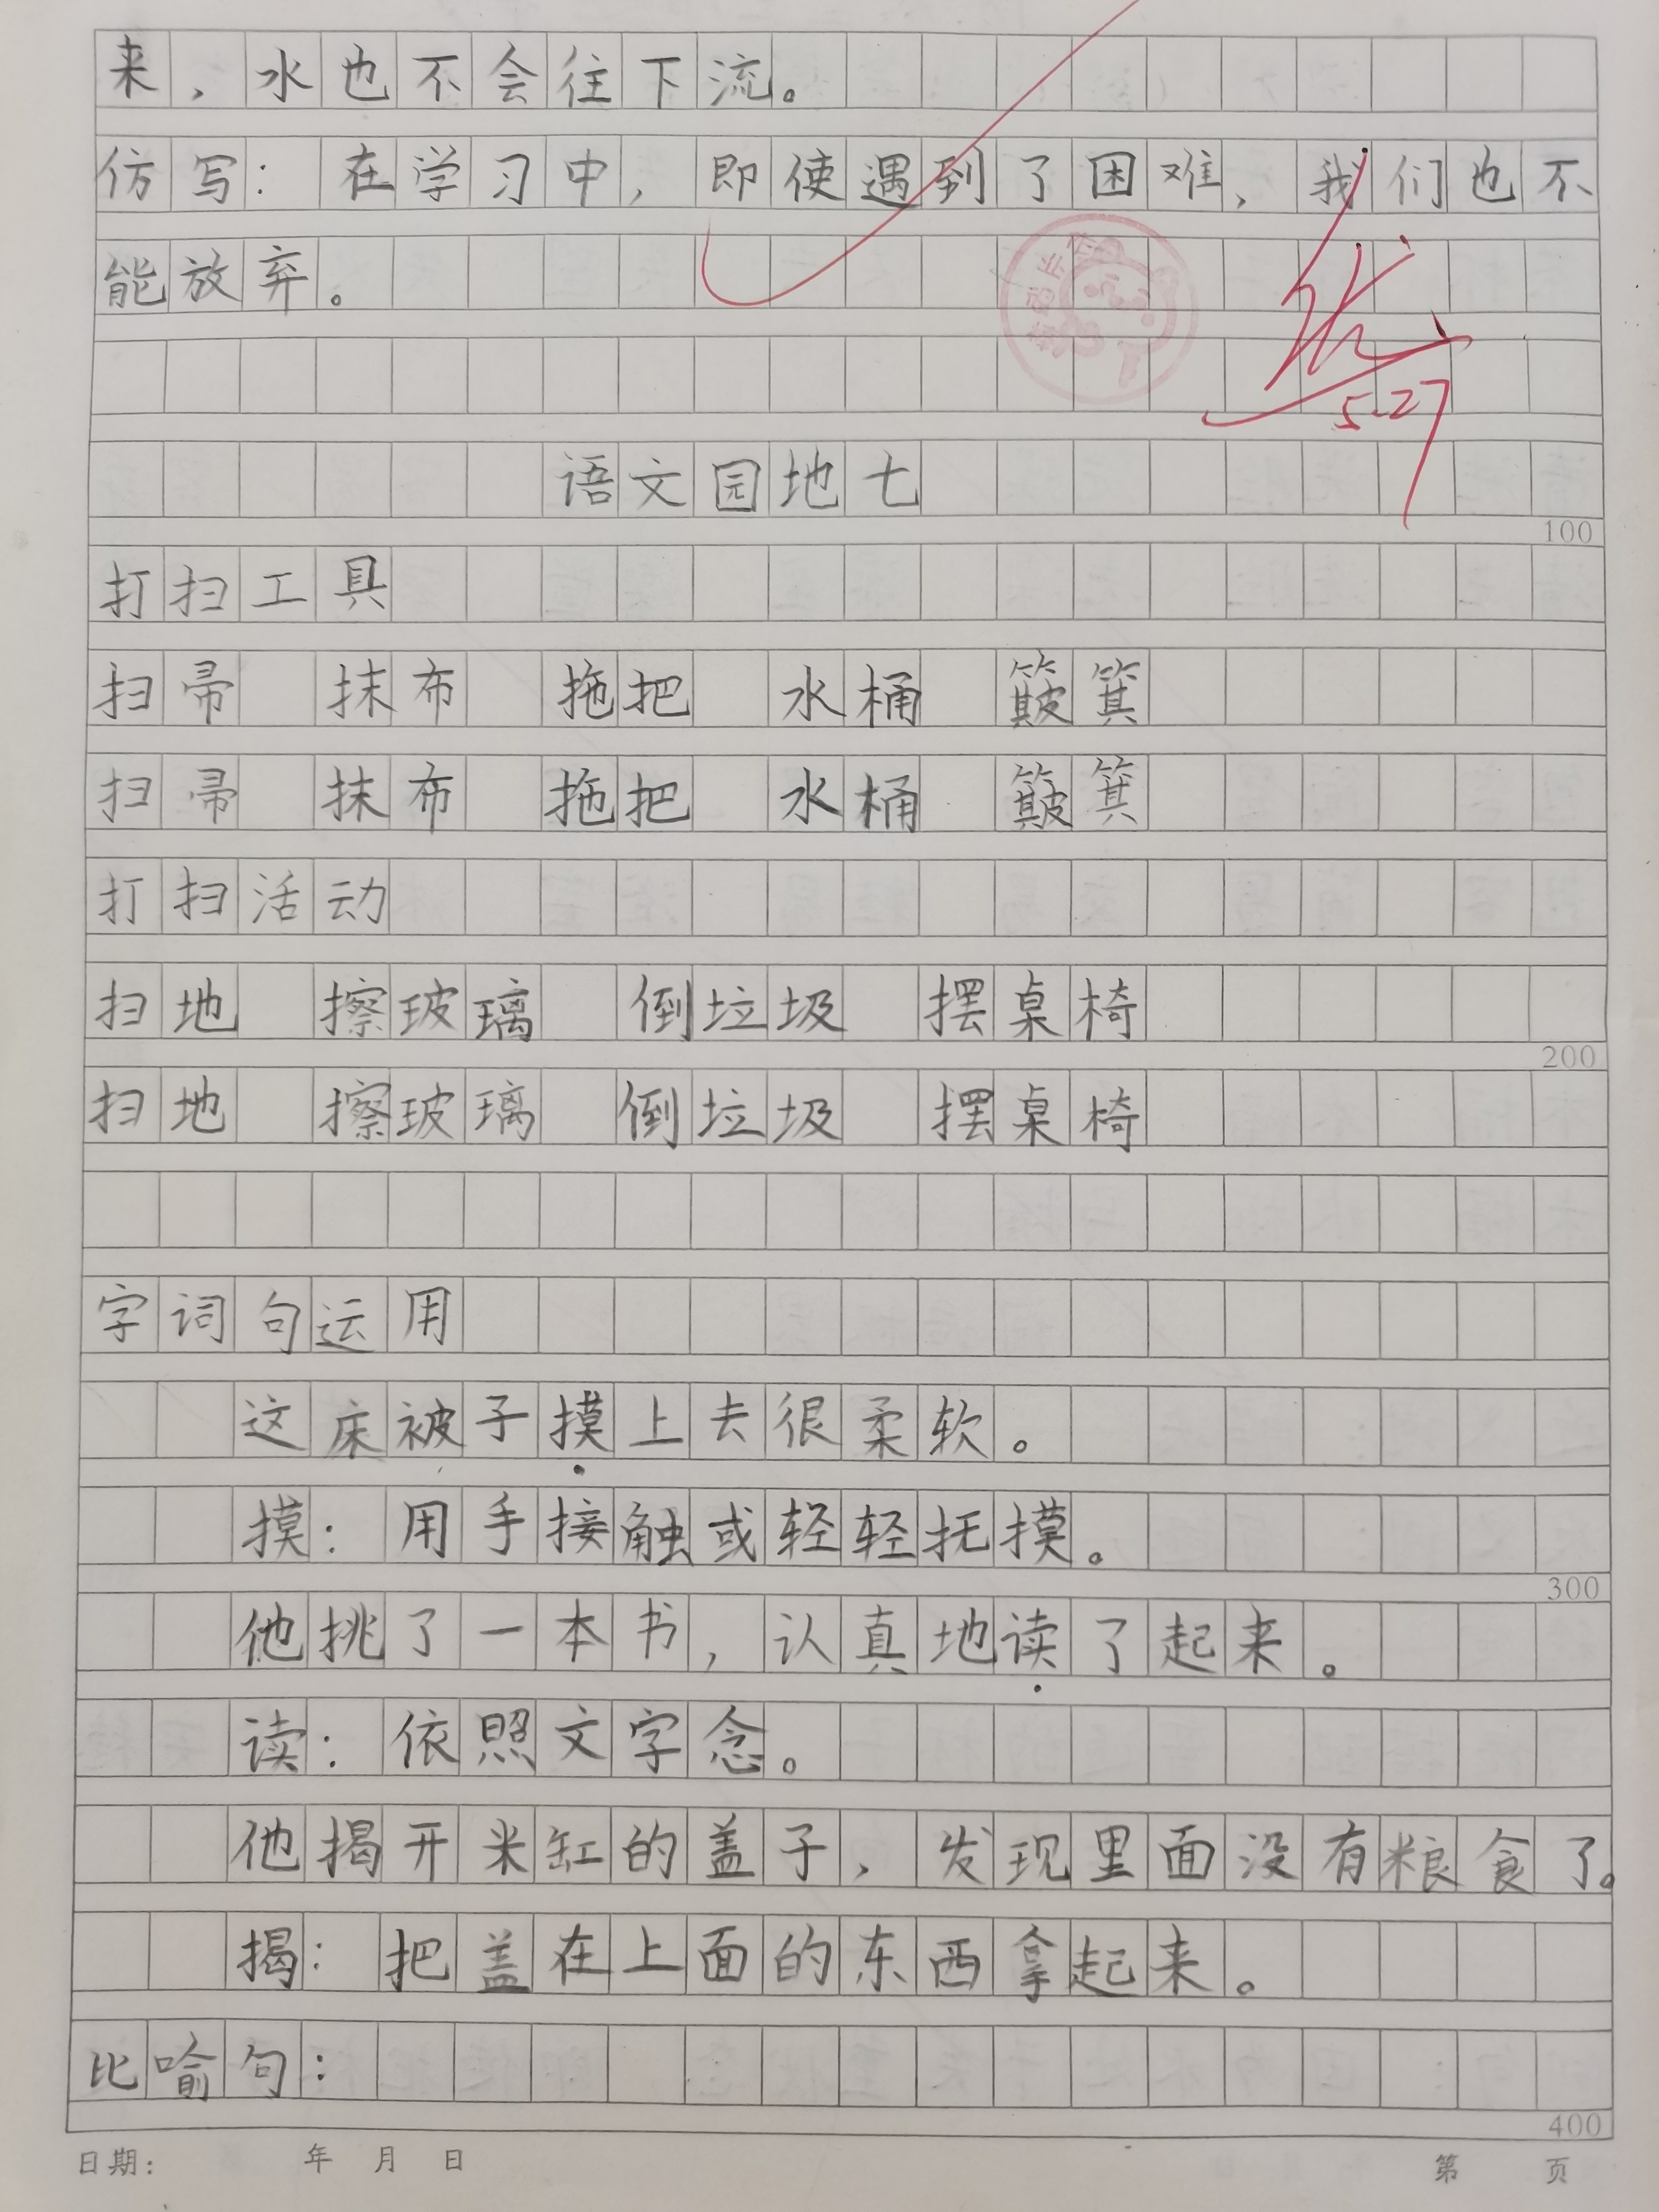 来，水也不会往下流。
仿写：在学习中，即使遇到了困难，我们也不
能放弃。
优
5.27
语文园地七
100
打扫工具
扫帚 抹布 拖把 水桶 簸箕
扫帚 抹布 拖把 水桶 簸箕
打扫活动
扫地 擦玻璃 倒垃圾 摆桌椅
200
扫地 擦玻璃 倒垃圾 摆桌椅
字词句运用
这床被子摸上去很柔软。
摸：用手接触或轻轻抚摸。
300
他挑了一本书，认真地读了起来。
读：依照文字念。
他揭开米缸的盖子，发现里面没有粮食了。
揭：把盖在上面的东西拿起来。
比喻句：
400
日期： 年 月 日 第 页